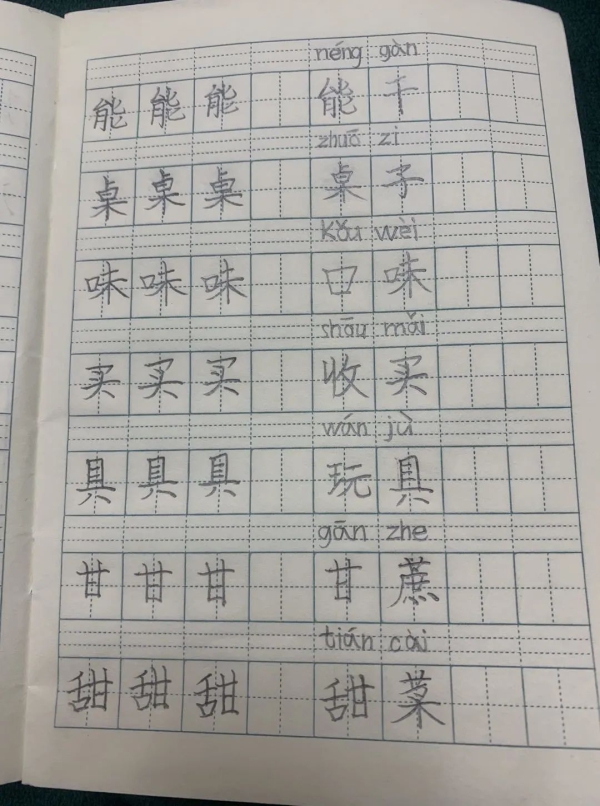 néng gàn
能 能 能 能 干
zhuō zi
桌 桌 桌 桌 子
kǒu wèi
味 味 味 口 味
shōu mǎi
买 买 买 收 买
wán jù
具 具 具 玩 具
gān zhe
甘 甘 甘 甘 蔗
tián cài
甜 甜 甜 甜 菜